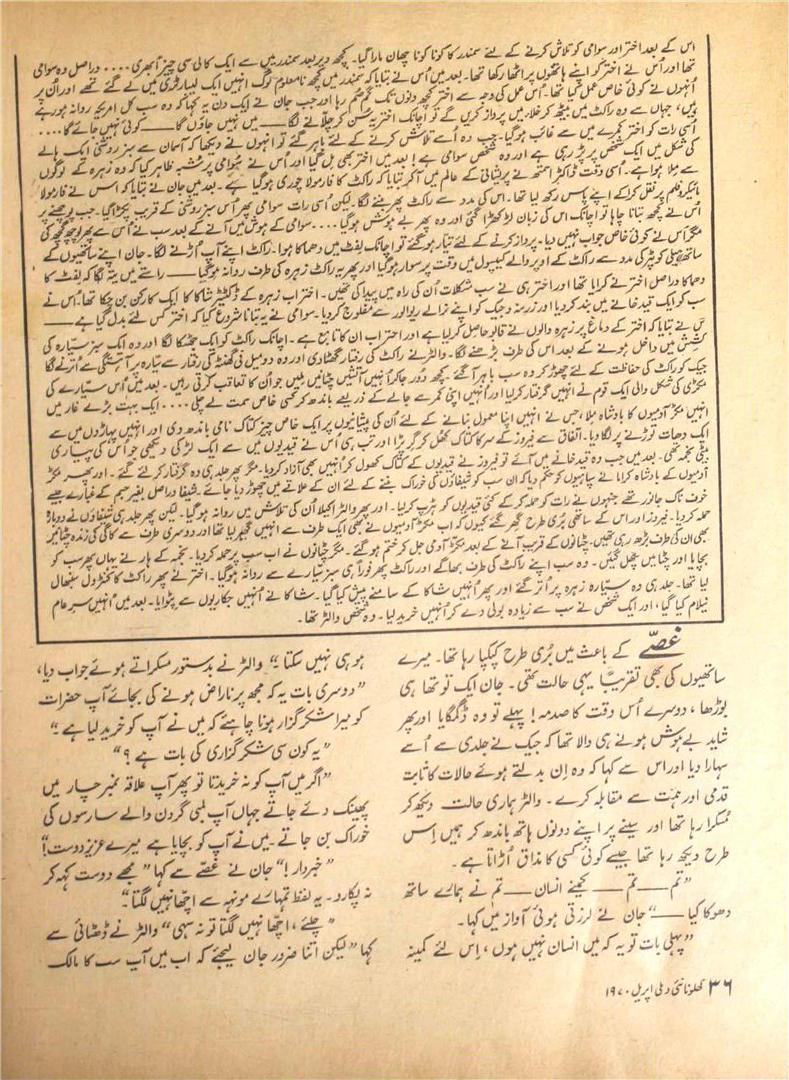 اس کے بعد اختر اور سوامی کو تلاش کرنے کے لئے سمندر کا کونا کونا چھان مارا گیا۔ کچھ دیر بعد سمندر میں سے ایک کالی سی چیز اُبھری .... دراصل وہ سوامی
تھا اور اُس نے اختر کو اپنے ہاتھوں پر اٹھا رکھا تھا۔ بعد میں اُس نے بتایا کہ سمندر میں کچھ نامعلوم لوگ انہیں ایک لیبارٹری میں لے گئے تھے اور اُن پر
اُنہوں نے کوئی خاص عمل کیا تھا۔ اُس عمل کی وجہ سے اختر کچھ دنوں تک گُم سُم رہا اور جب جان نے ایک دن یہ کہا کہ وہ سب کل امریکہ روانہ ہو رہے
ہیں، جہاں سے وہ راکٹ میں بیٹھ کر خلاء میں پرواز کریں گے تو اچانک اختر یہ سُن کر چلّانے لگا ــــ میں نہیں جاؤں گا ــــ کوئی نہیں جائے گا ....
اُسی رات کو اختر کمرے میں سے غائب ہو گیا۔ جب وہ اُسے تلاش کرنے کے لئے باہر گئے تو انہوں نے دیکھا کہ آسمان سے سبز روشنی ایک ہالے
کی شکل میں ایک شخص پر پڑ رہی ہے اور وہ شخص سوامی ہے! بعد میں اختر بھی مل گیا اور اُس نے سوامی پر شبہ ظاہر کیا کہ وہ زہرہ کے لوگوں
سے ملا ہوا ہے۔ اُسی وقت ڈاکٹر اسمتھ نے پریشانی کے عالم میں آکر بتایا کہ راکٹ کا فارمولا چوری ہو گیا ہے۔ بعد میں جان نے بتایا کہ اس نے فارمولا
مائیکرو فلم پر نقل کرا کے اپنے پاس رکھ لیا تھا۔ اس کی مدد سے راکٹ پھر بننے لگا۔ لیکن اُسی رات سوامی پھر اُس سبز روشنی کے قریب پکڑا گیا۔ جب پوچھنے پر
اُس نے کچھ بتانا چاہا تو اچانک اس کی زبان لڑکھڑا گئی اور وہ پھر بے ہوش ہو گیا .... سوامی کے ہوش میں آنے کے بعد سب نے اُس سے پھر پوچھ گچھ کی
مگر اُس نے کوئی خاص جواب نہیں دیا۔ پرواز کرنے کے لئے تیار ہو گئے تو اچانک لفٹ میں دھماکا ہوا۔ راکٹ اپنے آپ اُڑنے لگا۔ جان اپنے ساتھیوں کے
ساتھ ہیلی کوپٹر کی مدد سے راکٹ کے اوپر والے کیپسول میں وقت پر سوار ہو گیا اور پھر یہ راکٹ زہرہ کی طرف روانہ ہو گیا ــــ راستے میں پتہ لگا کہ لفٹ کا
دھماکا دراصل اختر نے کرایا تھا اور اختر ہی نے سب مشکلات اُن کی راہ میں پیدا کی تھیں۔ اختر اب زہرہ کے ڈکٹیٹر شاکا کا ایک کارکن بن چکا تھا۔ اُس نے
سب کو ایک قید خانے میں بند کر دیا اور زرینہ و جیک کو اپنے نرالے ریوالور سے مفلوج کر دیا۔ سوامی نے یہ بتانا شروع کیا کہ اختر کس لئے بدل گیا ہے ــــ
نے بتایا کہ اختر کے دماغ پر زہرہ والوں نے قابو حاصل کر لیا ہے اور اختر اب ان کا تابع ہے۔ اچانک راکٹ کو ایک جھٹکا لگا اور وہ ایک سبز ستیارہ کی
کشش میں داخل ہونے کے بعد اس کی طرف بڑھنے لگا۔ والٹر نے راکٹ کی رفتار گھٹا دی اور وہ دو میل فی گھنٹہ کی رفتار سے سیارہ پر آہستگی سے اُترنے لگا
جیک کو راکٹ کی حفاظت کے لئے چھوڑ کر وہ سب باہر آ گئے۔ کچھ دور جا کر انہیں آتشیں چٹانیں ملیں جو اُن کا تعاقب کرتی رہیں۔ بعد میں اُس سیارے کی
مکڑی کی شکل والی ایک قوم نے انہیں گرفتار کر لیا اور اُنہیں اپنی کمر سے جالے کے ذریعے باندھ کر کسی خاص سمت لے چلی .... ایک بہت بڑے غار میں
انہیں مکڑ آدمیوں کا بادشاہ ملا، جس نے انہیں اپنا معمول بنانے کے لئے اُن کی پیشانیوں پر ایک خاص چیز کٹاک نامی باندھ دی اور انہیں پہاڑوں میں سے
ایک دھات توڑنے پر لگا دیا۔ اتفاق سے فیروز کے سر کا کٹاک کھل کر گر پڑا اور تب ہی اُس نے قیدیوں میں سے ایک لڑکی دیکھی جو اُس کی پیاری
بیٹی نجمہ تھی۔ بعد میں جب وہ قید خانے میں آئے تو فیروز نے قیدیوں کے کٹاک کھول کر اُنہیں بھی آزاد کر دیا۔ مگر پھر جلد ہی وہ گرفتار کر لئے گئے۔ اور پھر مکڑ
آدمیوں کے بادشاہ کرابا نے سپاہیوں کو حکم دیا کہ ان سب کو شیفاؤں کی خوراک بننے کے لئے ان کے علاقے میں چھوڑ دیا جائے۔ شیفا دراصل بغیر جسم کے غبارے جیسے
خوف ناک جانور تھے جنہوں نے رات کو حملہ کر کے کئی قیدیوں کو ہڑپ کر لیا۔ اور پھر والٹر اکیلا اُن کی تلاش میں روانہ ہو گیا۔ لیکن پھر جلد ہی شیفاؤں نے دوبارہ
حملہ کر دیا۔ فیروز اور اس کے ساتھی بُری طرح گھر گئے کیوں کہ اب مکڑ آدمیوں نے بھی ایک طرف سے انہیں گھیر لیا تھا اور دوسری طرف سے سکاگی کی زندہ چٹانیں
بھی ان کی طرف بڑھ رہی تھیں۔ چٹانوں کے قریب آنے کے بعد مکڑ آدمی جل کر ختم ہو گئے۔ مگر چٹانوں نے اب سب پر حملہ کر دیا۔ نجمہ کے ہار نے یہاں پھر سب کو
بچایا اور چٹانیں پگھل گئیں۔ وہ سب اپنے راکٹ کی طرف بھاگے اور راکٹ پھر فوراً ہی سبز سیارے سے روانہ ہو گیا۔ اختر نے پھر راکٹ کا کنٹرول سنبھال
لیا تھا۔ جلد ہی وہ ستیارہ زہرہ پر اُتر گئے اور پھر اُنہیں شاکا کے سامنے پیش کیا گیا۔ شاکا نے اُنہیں جکاریوں سے پٹوایا۔ بعد میں اُنہیں سرِ عام
نیلام کیا گیا، اور ایک شخص نے سب سے زیادہ بولی دے کر اُنہیں خرید لیا۔ وہ شخص والٹر تھا۔
غصّے کے باعث میں بُری طرح کپکپا رہا تھا۔ میرے
ساتھیوں کی بھی تقریباً یہی حالت تھی۔ جان ایک تو تھا ہی
بوڑھا، دوسرے اُس وقت کا صدمہ! پہلے تو وہ ڈگمگایا اور پھر
شاید بے ہوش ہونے ہی والا تھا کہ جیک نے جلدی سے اُسے
سہارا دیا اور اس سے کہا کہ وہ اِن بدلتے ہوئے حالات کا ثابت
قدمی اور ہمّت سے مقابلہ کرے۔ والٹر ہماری حالت دیکھ کر
مُسکرا رہا تھا اور سینے پر اپنے دونوں ہاتھ باندھ کر ہمیں اِس
طرح دیکھ رہا تھا جیسے کوئی کسی کا مذاق اُڑاتا ہے۔
”تم ــــ تم ــــ کمینے انسان ــــ تم نے ہمارے ساتھ
دھوکا کیا ــــ“ جان نے لرزتی ہوئی آواز میں کہا۔
”پہلی بات تو یہ کہ میں انسان نہیں ہوں، اِس لئے کمینہ
ہو ہی نہیں سکتا۔“ والٹر نے بدستور مسکراتے ہوئے جواب دیا،
”دوسری بات یہ کہ مجھ پر ناراض ہونے کی بجائے آپ حضرات
کو میرا شکر گزار ہونا چاہئے کہ میں نے آپ کو خرید لیا ہے۔“
”یہ کون سی شکر گزاری کی بات ہے؟“
”اگر میں آپ کو نہ خریدتا تو پھر آپ علاقہ نمبر چار میں
پھینک دئے جاتے جہاں آپ لمبی گردن والے سارسوں کی
خوراک بن جاتے۔ میں نے آپ کو بچایا ہے میرے عزیز دوست!“
”خبردار!“ جان نے غصّے سے کہا ”مجھے دوست کہہ کر
نہ پکارو۔ یہ لفظ تمہارے مونہہ سے اچھا نہیں لگتا۔“
”چلئے، اچھا نہیں لگتا تو نہ سہی“ والٹر نے ڈھٹائی سے
کہا ”لیکن اتنا ضرور جان لیجئے کہ اب میں آپ سب کا مالک
۳۶ کھلونا نئی دہلی اپریل ۱۹۷۰